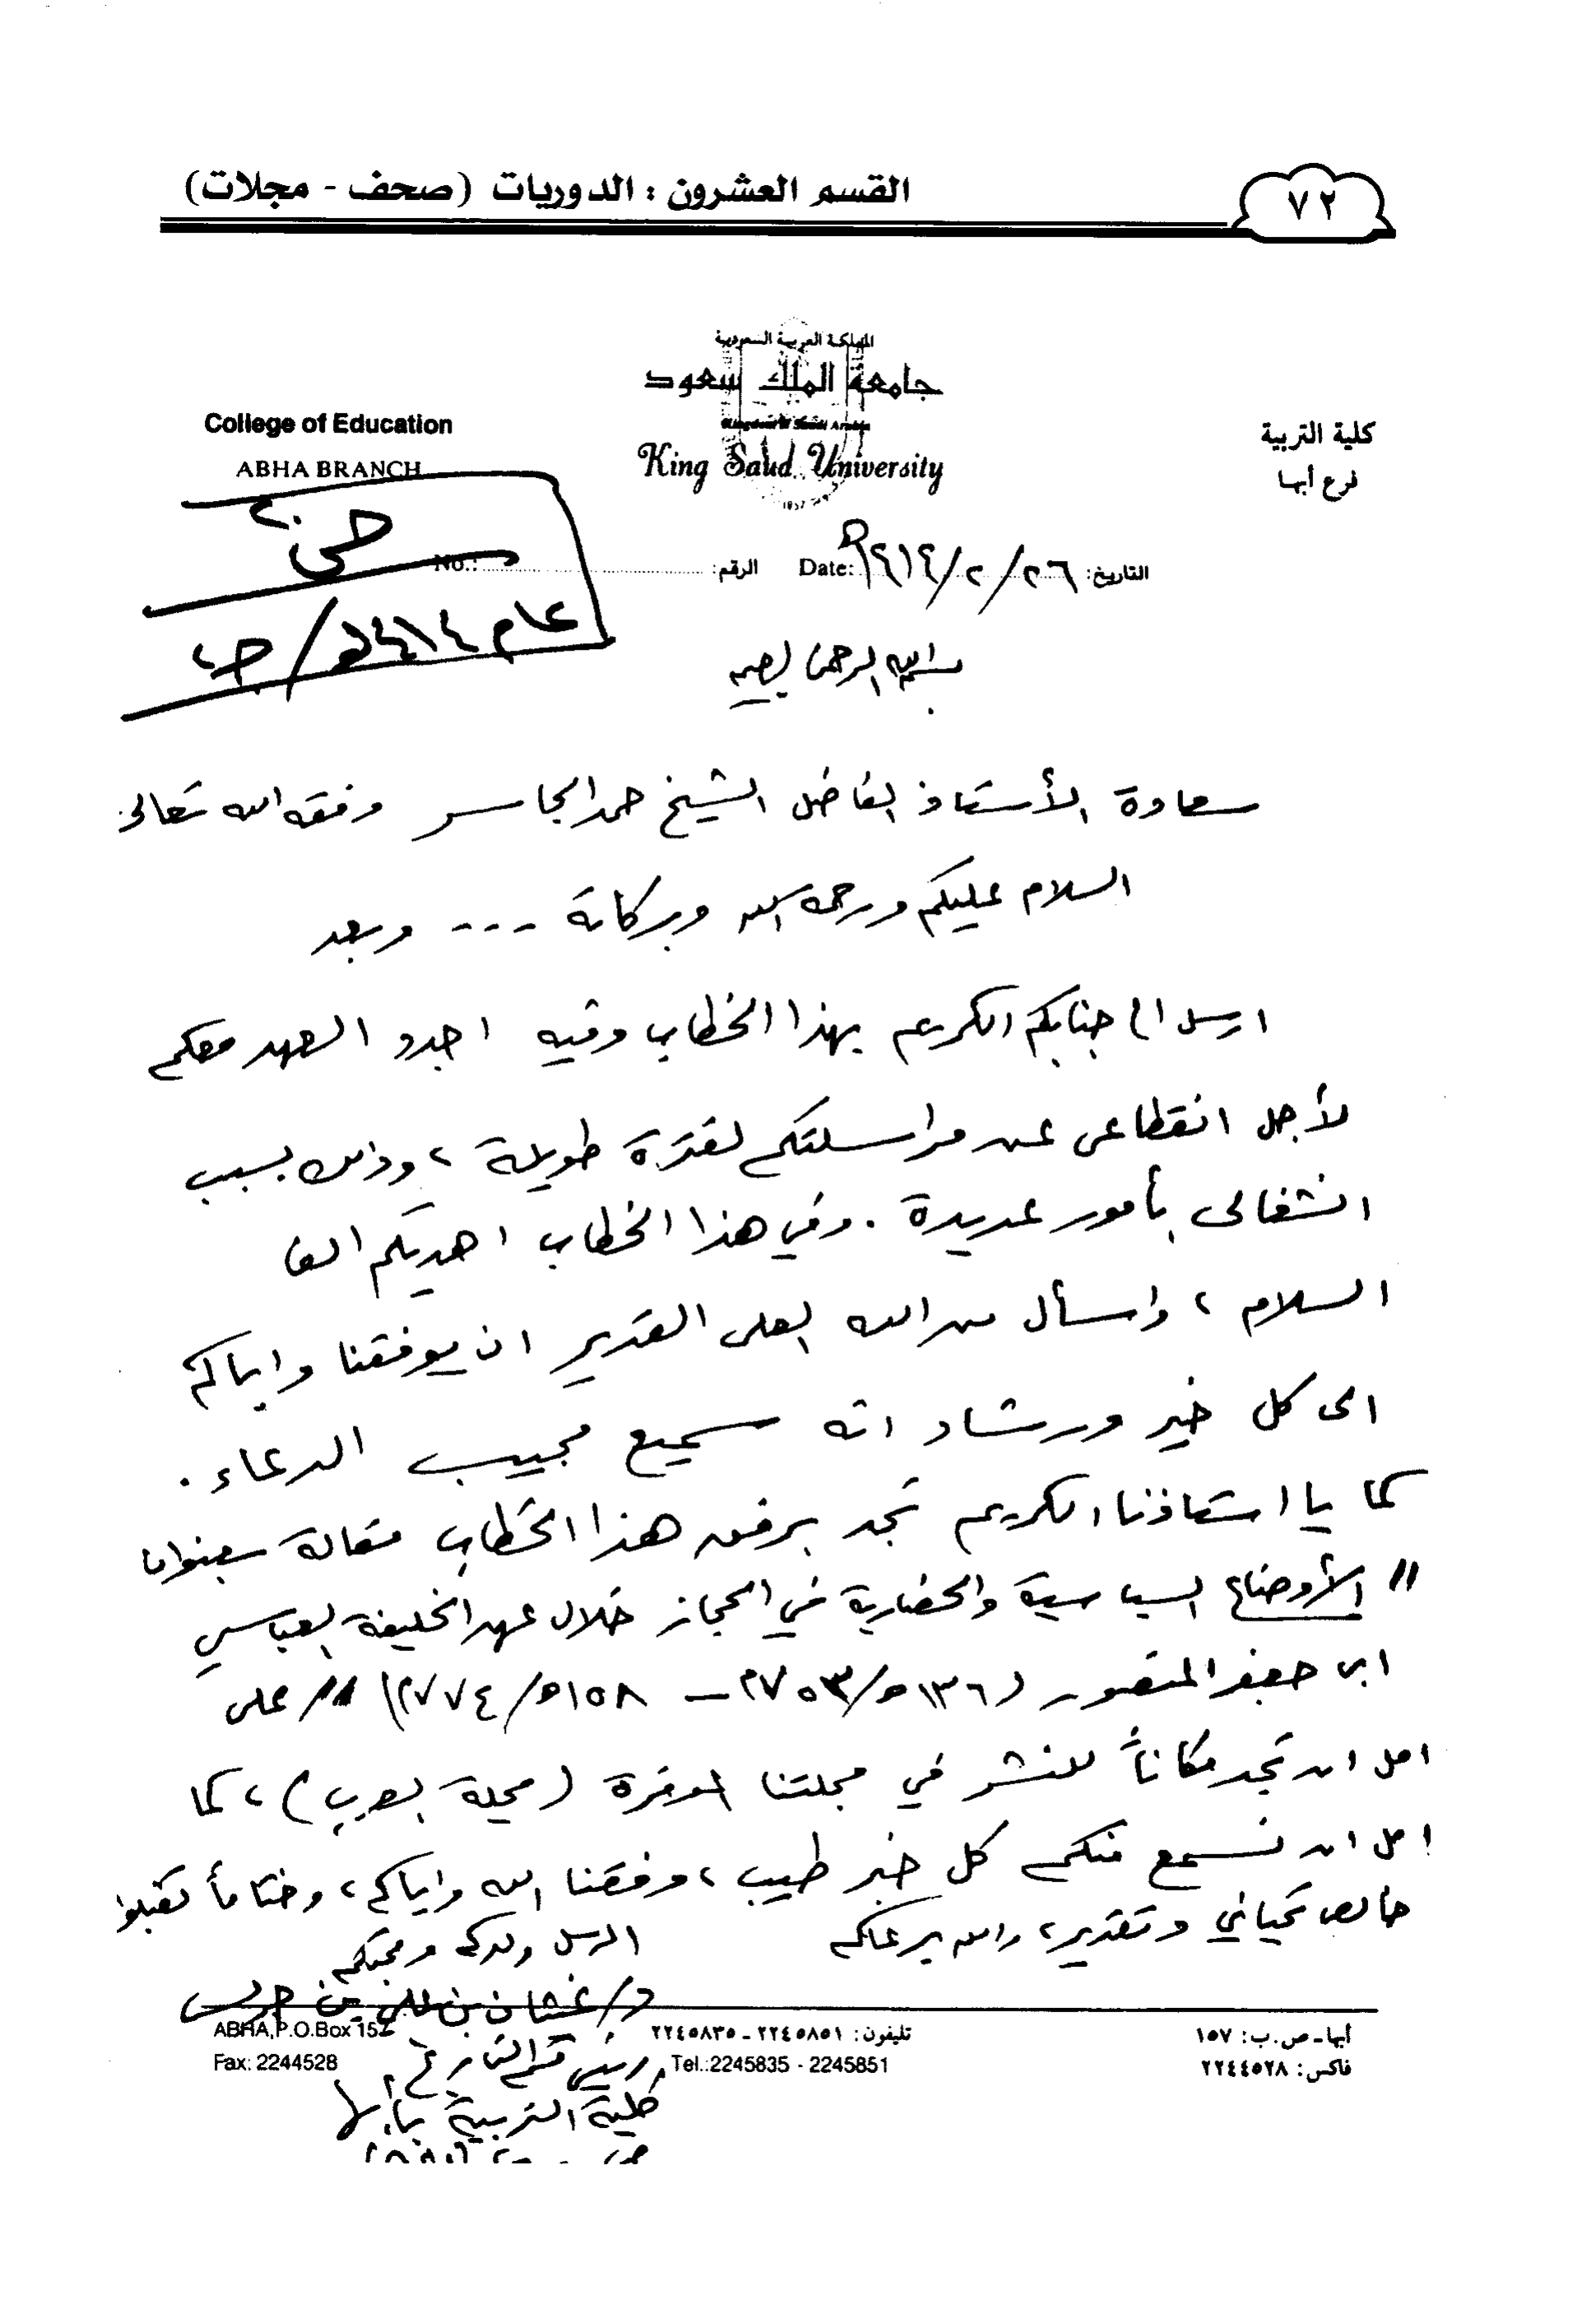 القسم العشرون : الدوريات (صحف - مجلات)
٧٢
المملكة العربية السعودية
جامعة الملك سعود
Kingdom of Saudi Arabia
King Saud University
1957
College of Education
ABHA BRANCH
كلية التربية
فرع أبها
التاريخ: ٢٦/٢/١٤١٤هـ Date: الرقم: No.:
عام ١٤١٤هـ/
بسم الله الرحمن الرحيم
سعادة الأستاذ الفاضل الشيخ حمد الجاسر وفقه الله تعالى
السلام عليكم ورحمة الله وبركاته --- وبعد
ارسل الى جنابكم الكريم بهذا الخطاب وفيه اجدد العهد معكم
لأجل انقطاعى عن مراسلتكم لفترة طويلة، وذلك بسبب
انشغالى بأمور عديدة. وفي هذا الخطاب اهديكم الف
السلام، واسأل من الله العلى القدير ان يوفقنا واياكم
الى كل خير ورشاد انه سميع مجيب الدعاء.
كما يا استاذنا الكريم تجد برفق هذا الخطاب مقالة بعنوان
" الأوضاع السياسية والحضارية في الحجاز خلال عهد الخليفة العباسي
ابى جعفر المنصور (١٣٦هـ/٧٥٣م - ١٥٨هـ/٧٧٤م)" على
امل ان تجد مكاناً للنشر في مجلتنا الموقرة (مجلة العرب)، كما
امل ان نسمع منكم كل خبر طيب، وفقنا الله واياكم، وختاماً تقبلوا
خالص تحياتي وتقدير، والله يرعاكم
المرسل ولدكم ومحبكم
د/ غيثان بن علي بن جريس
رئيس قسم التاريخ
كلية التربية بأبها
أبها - ص.ب: ١٥٧
فاكس: ٢٢٤٤٥٢٨
تليفون: ٢٢٤٥٨٥١ - ٢٢٤٥٨٣٥
Tel.:2245835 - 2245851
ABHA,P.O.Box 157
Fax: 2244528